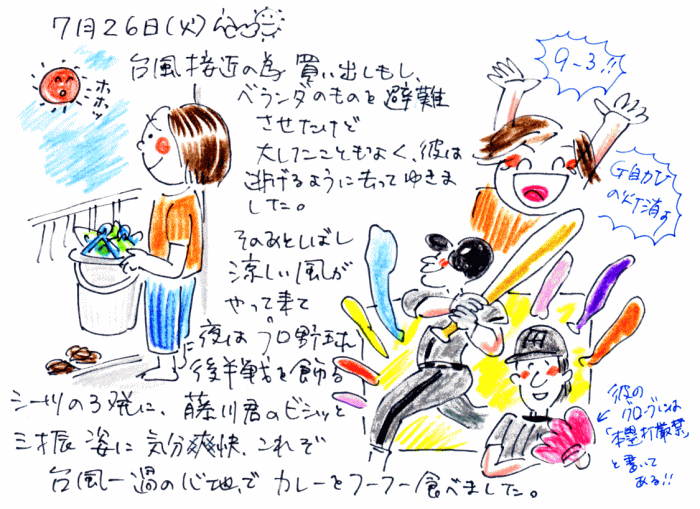 7月26日(火)
ホホッ
台風接近の為 買い出しもし、
ベランダのものを避難
させたけど
大したこともなく、彼は
逃げるように去ってゆきま
した。
そのあとしばし
涼しい風が
やって来て
夜は プロ野球
後半戦を飾る
シーツの3発に、藤川君のビシッと
三振 姿に 気分爽快、これぞ
台風一過の心地で カレーをフーフー食べました。
9-3!!
G自力V
の灯消す
彼の
グローブには
「本塁打厳禁」
と書いて
ある!!